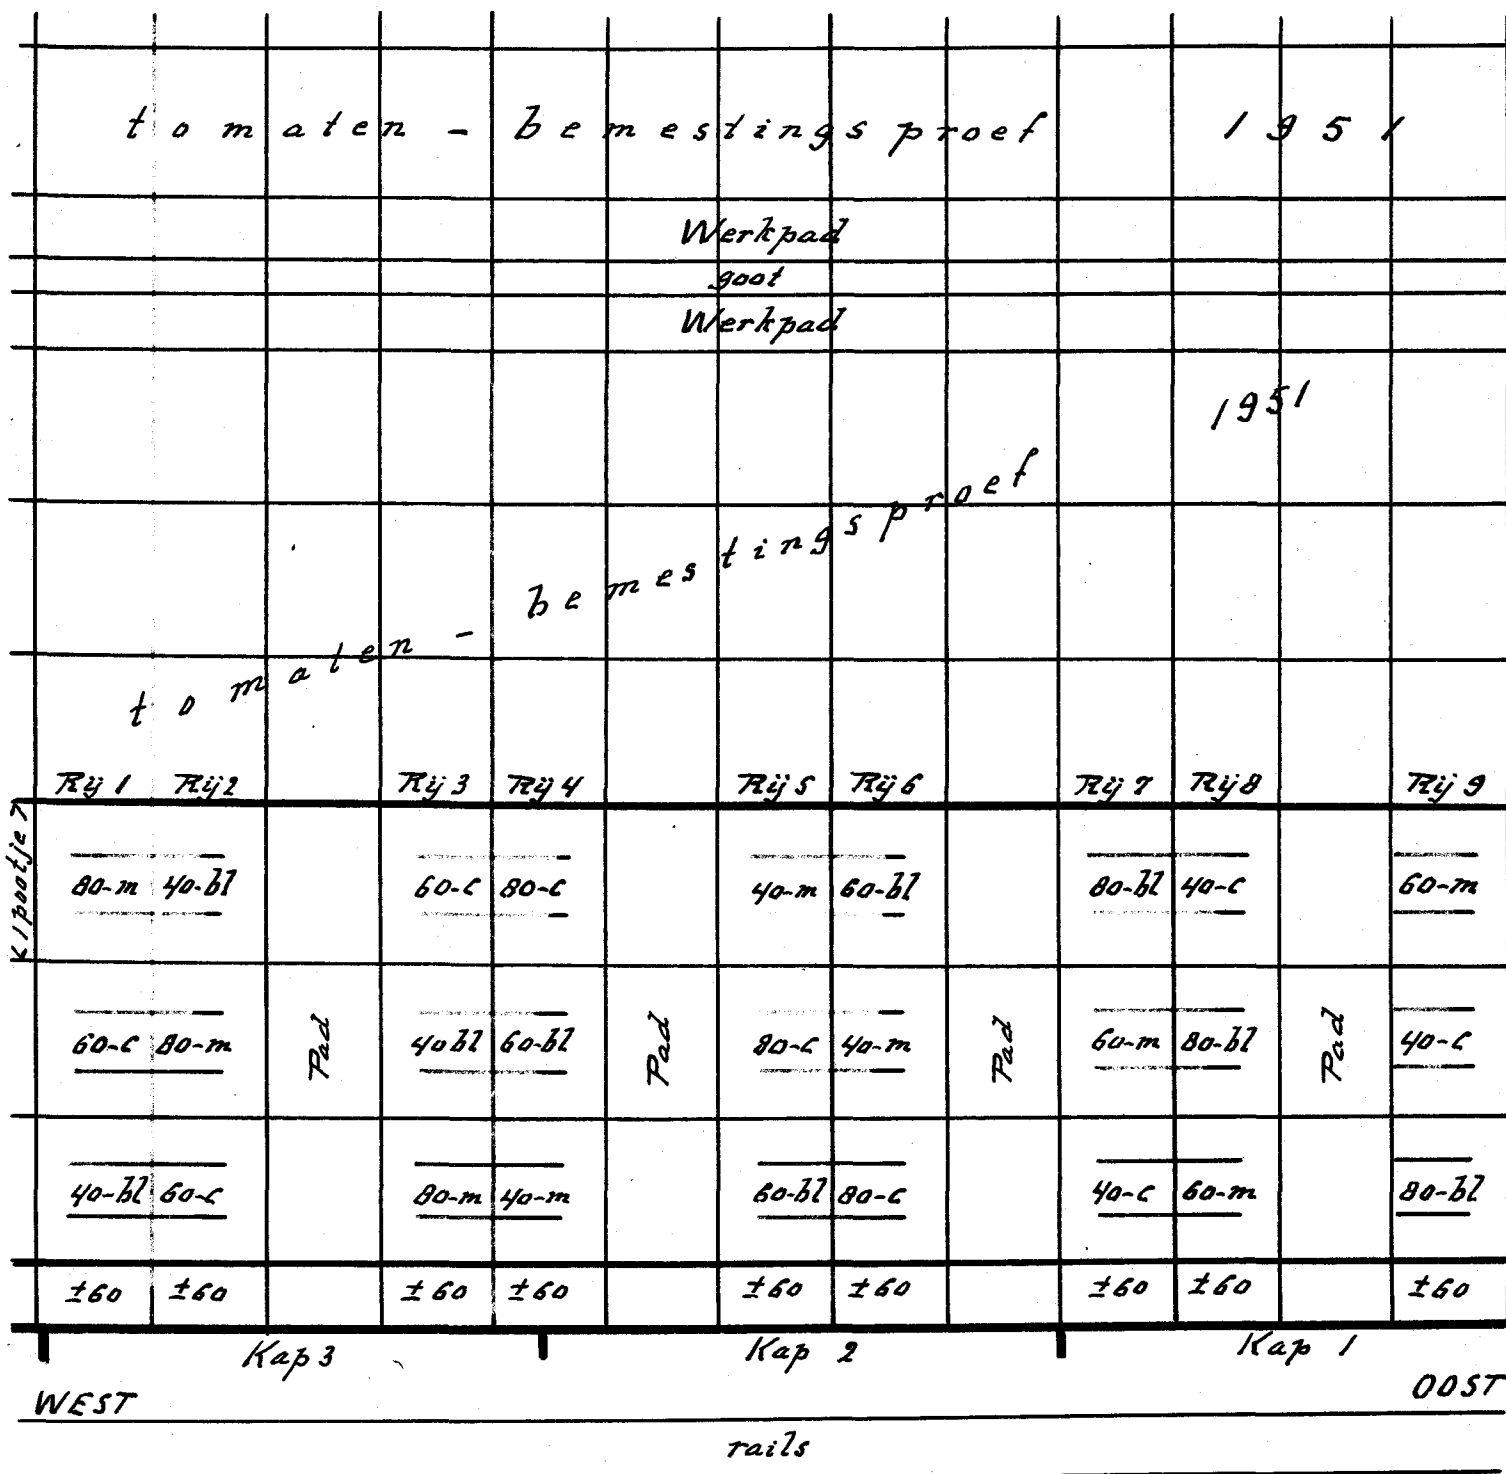 tomaten - bemestingsproef 1951
Werkpad
goot
Werkpad
1951
tomaten - bemestingsproef
Rij 1 Rij 2 Rij 3 Rij 4 Rij 5 Rij 6 Rij 7 Rij 8 Rij 9
< 1 pootje >
80-m 40-bl 60-c 80-c 40-m 60-bl 80-bl 40-c 60-m
60-c 80-m Pad 40 bl 60-bl Pad 80-c 40-m Pad 60-m 80-bl Pad 40-c
40-bl 60-c 80-m 40-m 60-bl 80-c 40-c 60-m 80-bl
±60 ±60 ±60 ±60 ±60 ±60 ±60 ±60 ±60
Kap 3 Kap 2 Kap 1
WEST OOST
rails